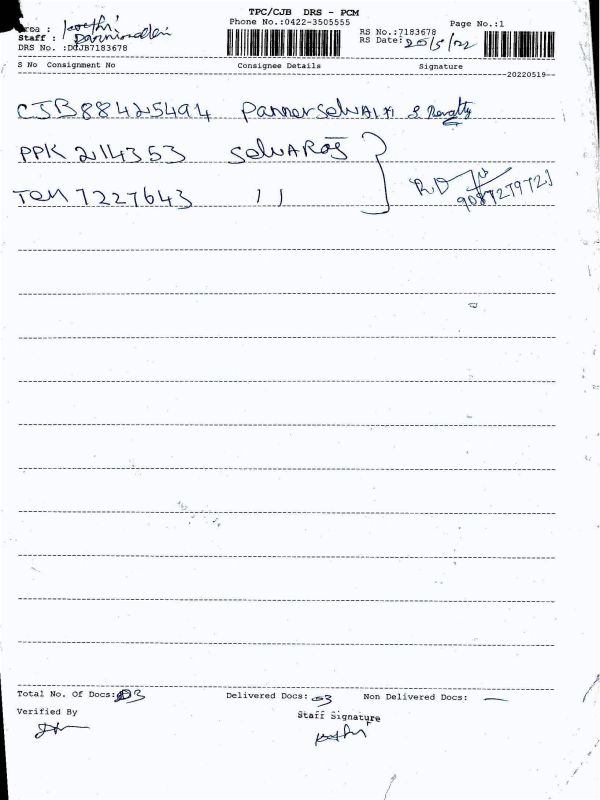 TPC/CJB DRS - PCM
Phone No.:0422-3505555 Page No.:1
Staff :
RS No.:7183678
RS Date: 20/5/22
DRS No. :DCJB7183678
S No Consignment No Consignee Details Signature
20220519
CJB88425494
PPK 2114353 SelvARaj
Ten 7227643 11
9087279723
Total No. Of Docs: 03 Delivered Docs: 03 Non Delivered Docs: —
Verified By Staff Signature